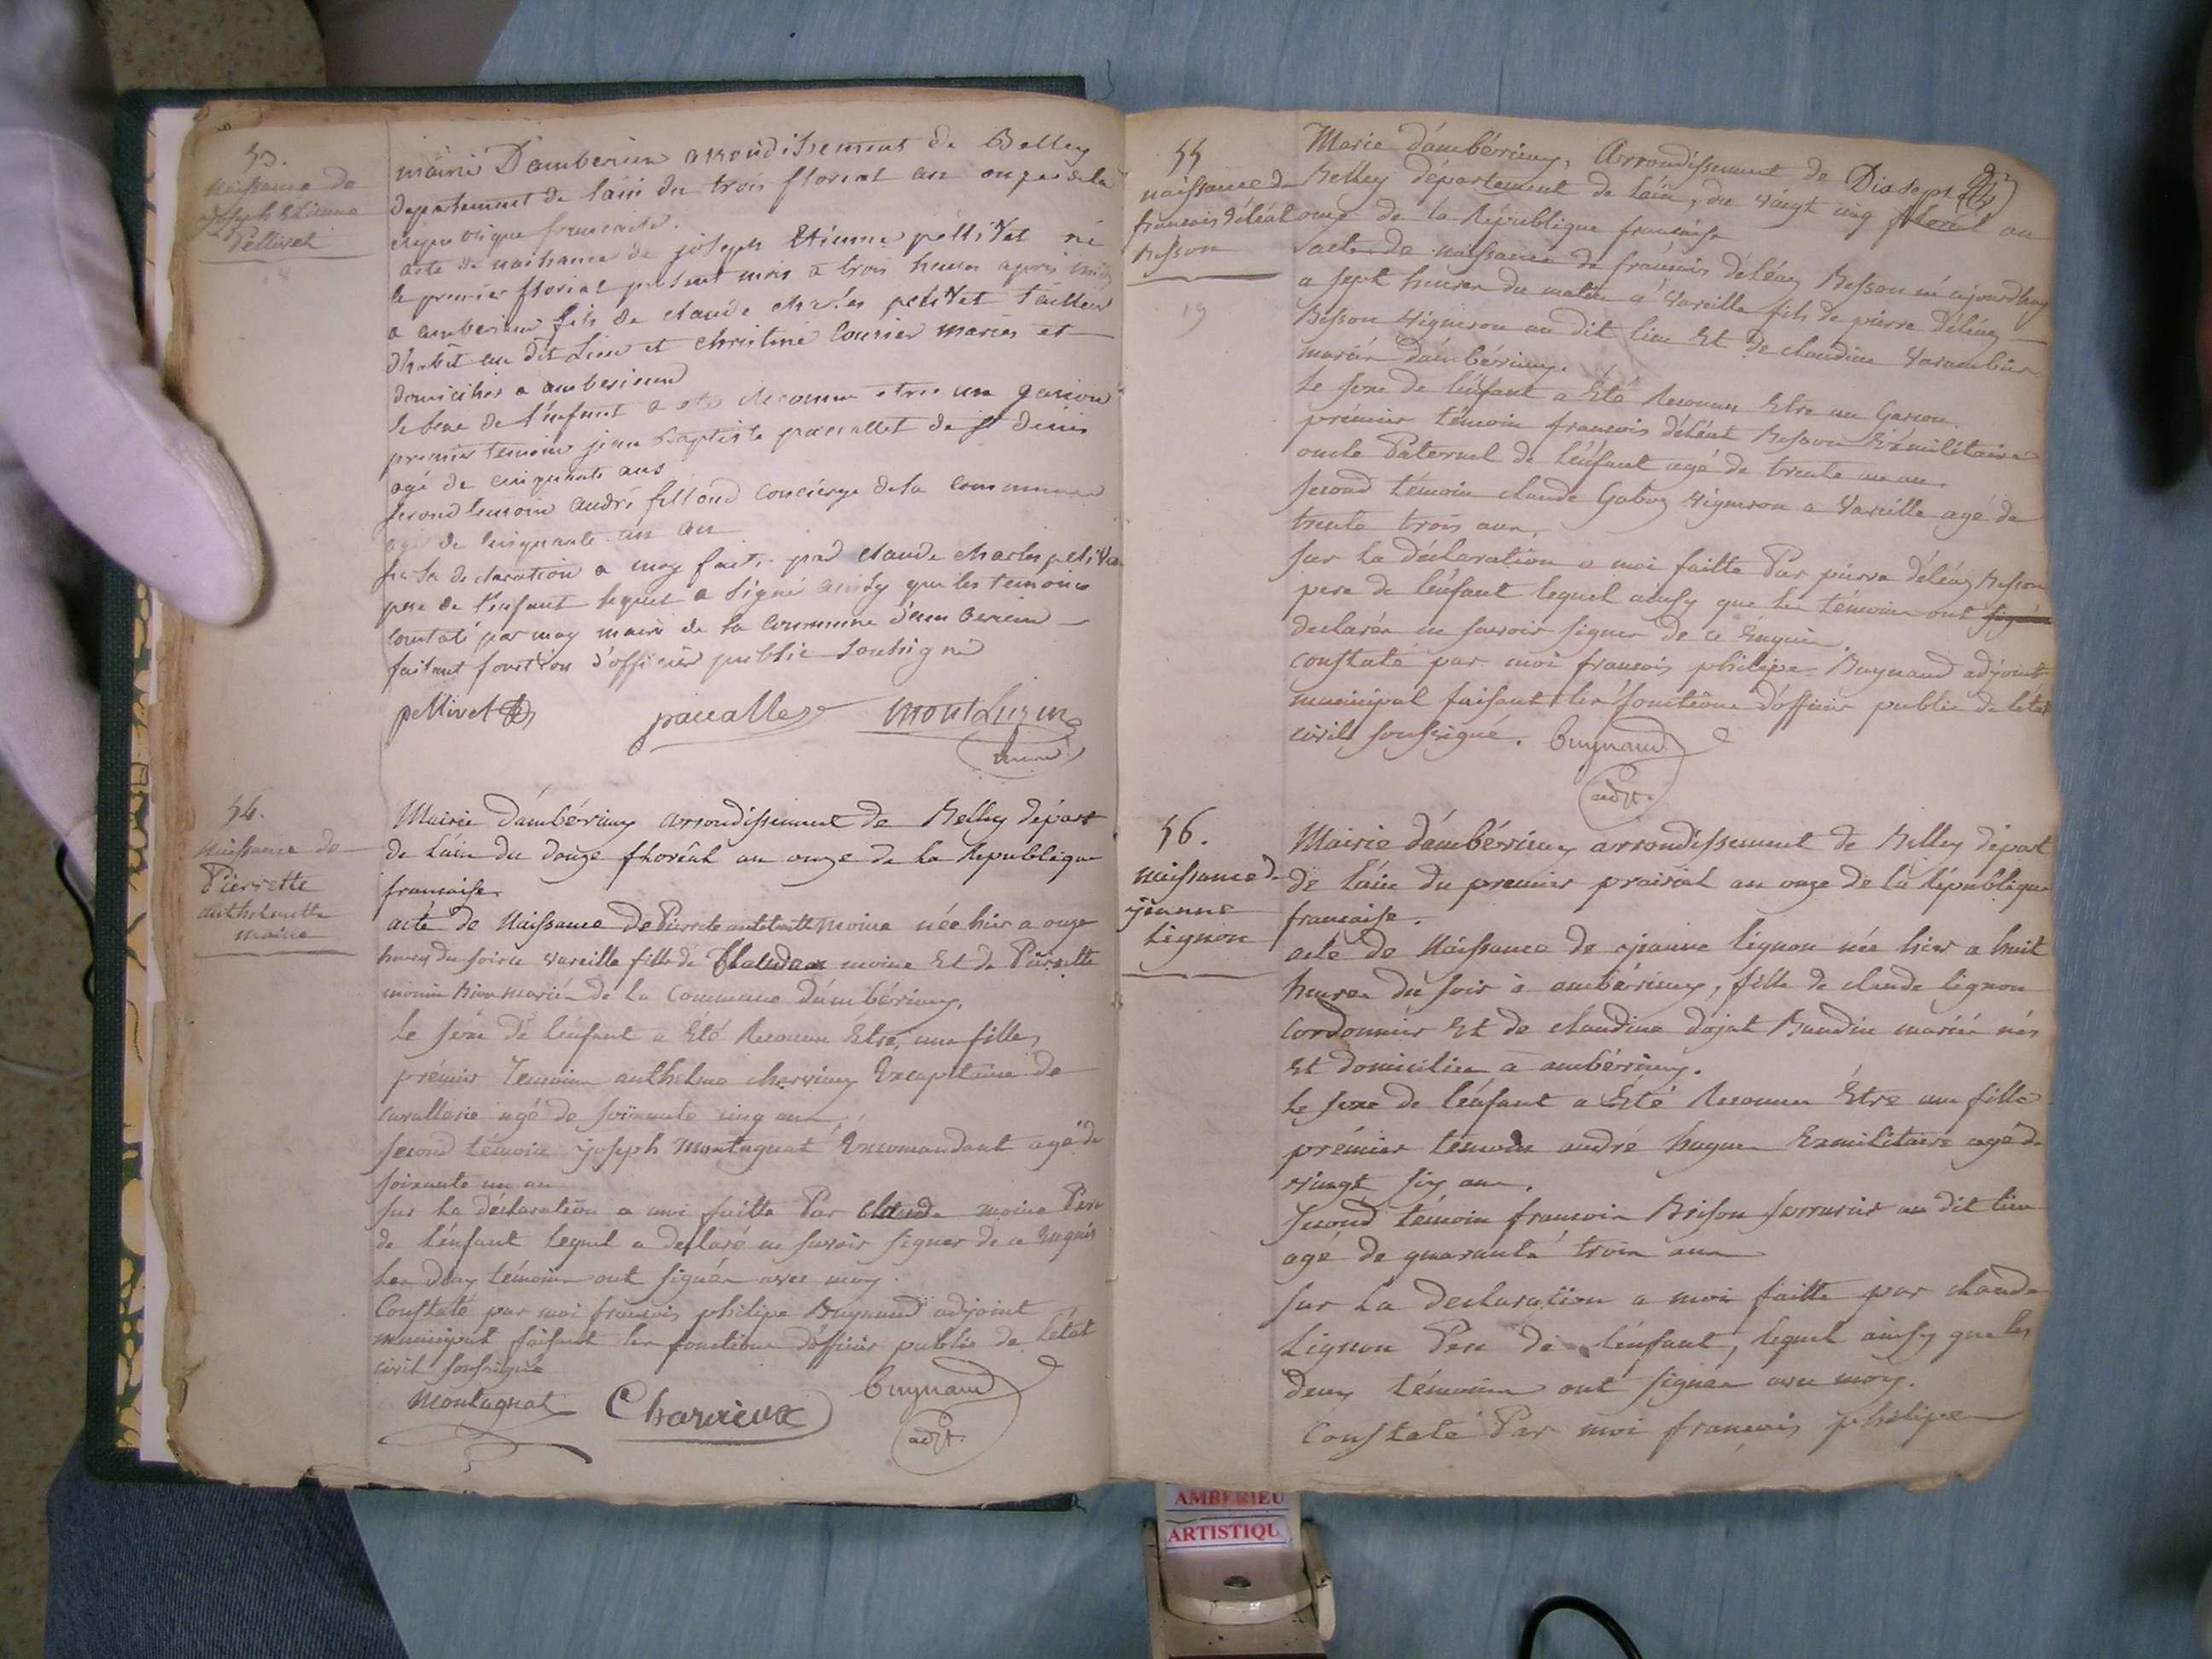 53.
Naissance de
joseph Etienne
Pellivet
18
mairie D'amberieu arrondissement de Belley
departement de lain du trois florial an onze de la
republique francaise.
acte de naissance de joseph Etienne pellivet né
le premier florial present mois a trois heures apres midy
a amberieu fils de claude charles pellivet tailleur
d'habit au dit Lieu et christine Cousier mariés et
domicilies a amberieu
le sexe de l'enfant a ete reconnu etre un garcon
premier temoin jean Baptiste pacallet de st denis
agé de cinquante ans
second temoin andré fellond concierge de la commune
agé de cinquante un an
sur la declaration a moy faite par claude charles pellivet
pere de l'enfant lequel a signé ainsy que les temoins
constaté par moy maire de la commune d'amberieu
faisant fonction d'officier public soussigné
pellivet pacallet montluzin
maire
54.
Naissance de
Pierrette
anthelmette
moine
Mairie d'ambérieux arrondissement de Belley départ
de l'ain du douze floréal an onze de la République
francaise
acte de Naissance de Pierrette anthelmette moine née hier a onze
heures du soir a vareille fille de Claude moine Et de Pierrette
monin Bion mariés de la Commune d'ambérieux,
le sexe de l'enfant a Eté Reconnu Etre, une fille,
prémier Temoin anthelme charvieux Excapitaine de
cavallerie agé de soixante cinq ans,
second témoin joseph Montagnat Excomandant agé de
soixante un an
sur la déclaration a moi faitte Par Claude moine Pere
de l'enfant lequel a déclaré ne savoir signer de ce Enquis
les deux témoins ont signés avec moy
Constaté par moi francois philipe Buynand adjoint
municipal faisant les fonctions d'officier public de l'état
civil soussigné
Montagnat Charvieux buynand
adjt.
55
naissance de
francois déléat
Besson
19
Marie d'ambérieux, Arrondissement de Dix sept
Belley département de l'ain, du vingt cinq floréal an
onze de la République francaise
acte de naissance de francois déléaz Besson né aujourdhuy
a sept heures du matin a Vareille fils de pierre déléaz
Besson vigneron au dit lieu Et de claudine Varambier
mariés d'ambérieux.
le sexe de l'enfant a Eté Reconnu Etre un Garcon.
prémier témoin francois déléat Besson Exmilitaire
oncle Paternel de l'enfant agé de trente un an.
second témoin claude Goboz vigneron a Vareille agé de
trente trois ans,
sur la déclaration a moi faitte Par pierre déléaz Besson
pere de l'enfant lequel ainsy que les témoins ont signés
declarés ne savoir signer de ce Enquis.
constaté par moi francois philipe Buynand adjoint
municipal faisant les fonctions d'officier public de l'état
civil soussigné. buynand
adjt.
56.
naissance de
jeanne
Lignon
Mairie d'ambérieux arrondissement de Belley départ
de l'ain du premier prairial an onze de la République
francaise.
acte de Naissance de jeanne lignon née hier a huit
heures du soir à ambérieux, fille de claude lignon
Cordonnier Et de claudine dojat Baudin mariés nés
Et domiciliés a ambérieux.
le sexe de l'enfant a Eté Reconnu Etre une fille
prémier témoin andré hugues Exmilitaire agé de
vingt six ans.
second témoin francois Brison serrurier au dit lieu
agé de quarante trois ans
sur la declaration a moi faitte par claude
Lignon Pere de l'enfant, lequel ainsy que les
deux témoins ont signés avec moy.
Constaté Par moi francois philipe
AMBERIEU
ARTISTIQU